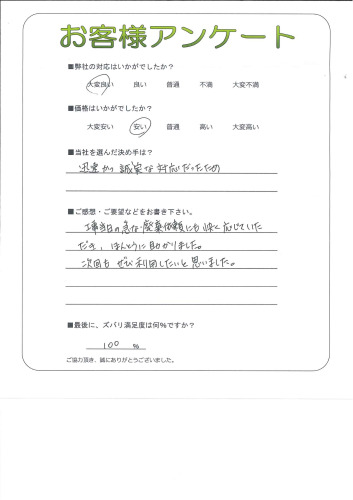 お客様アンケート
■弊社の対応はいかがでしたか?
大変良い 良い 普通 不満 大変不満
■価格はいかがでしたか?
大変安い 安い 普通 高い 大変高い
■当社を選んだ決め手は?
迅速かつ誠実な対応だったため
■ご感想・ご要望などをお書き下さい。
工事当日の急な廃棄依頼にも快く応じていた
だき、ほんとうに助かりました。
次回も ぜひ利用したいと思いました。
■最後に、ズバリ満足度は何%ですか?
100 %
ご協力頂き、誠にありがとうございました。